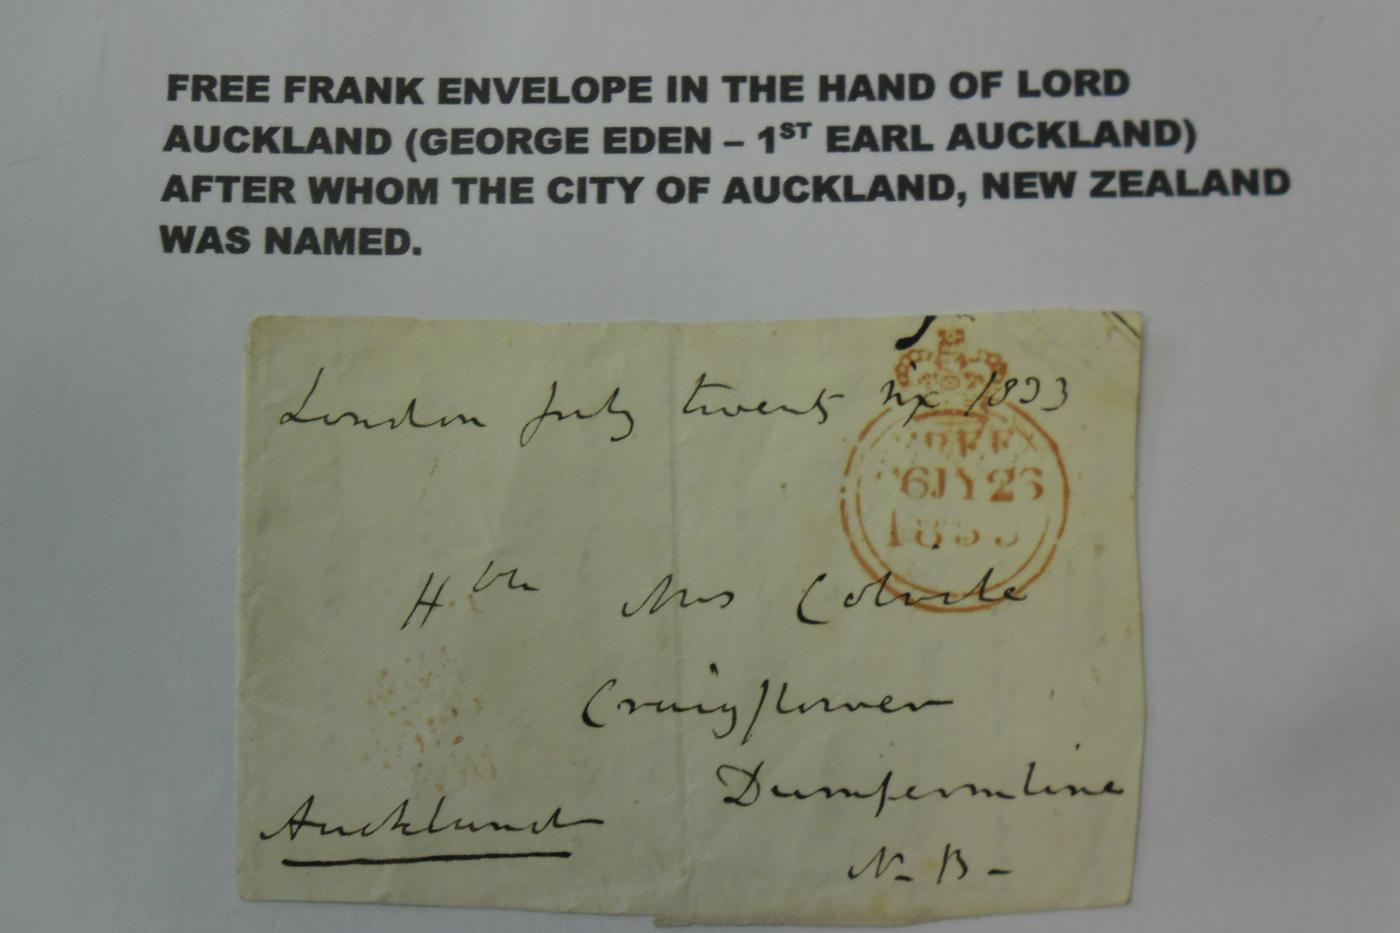 FREE FRANK ENVELOPE IN THE HAND OF LORD
AUCKLAND (GEORGE EDEN – 1ST EARL AUCKLAND)
AFTER WHOM THE CITY OF AUCKLAND, NEW ZEALAND
WAS NAMED.
London July twenty six 1833
FREE
26JY26
1833
Hble Mrs Colvile
Craigflower
Dumfermline
Auckland
N. B.